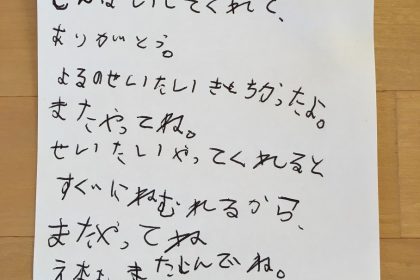 しんぱいしてくれて、
ありがとう。
よるのせいたいきもちかったよ。
またやってね。
せいたいやってくれると
すぐにねむれるから、
またやってね
えもまたよんでね。